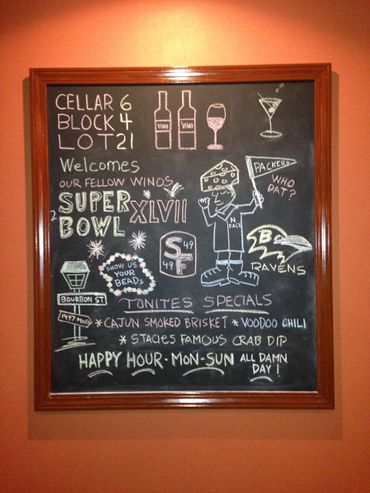 CELLAR 6
BLOCK 4
LOT 21
VINO
VINO
Welcomes
OUR FELLOW WINOS
2
SUPER
BOWL
XLVII
PACKERS
WHO
DAT?
SHOW US
YOUR
BEADS
49
SF
49
B
RAVENS
BOURBON ST
1497 MILES
TONITES SPECIALS
*CAJUN SMOKED BRISKET *VOODOO CHILI
*STACIES FAMOUS CRAB DIP
HAPPY HOUR - MON-SUN ALL DAMN
DAY!